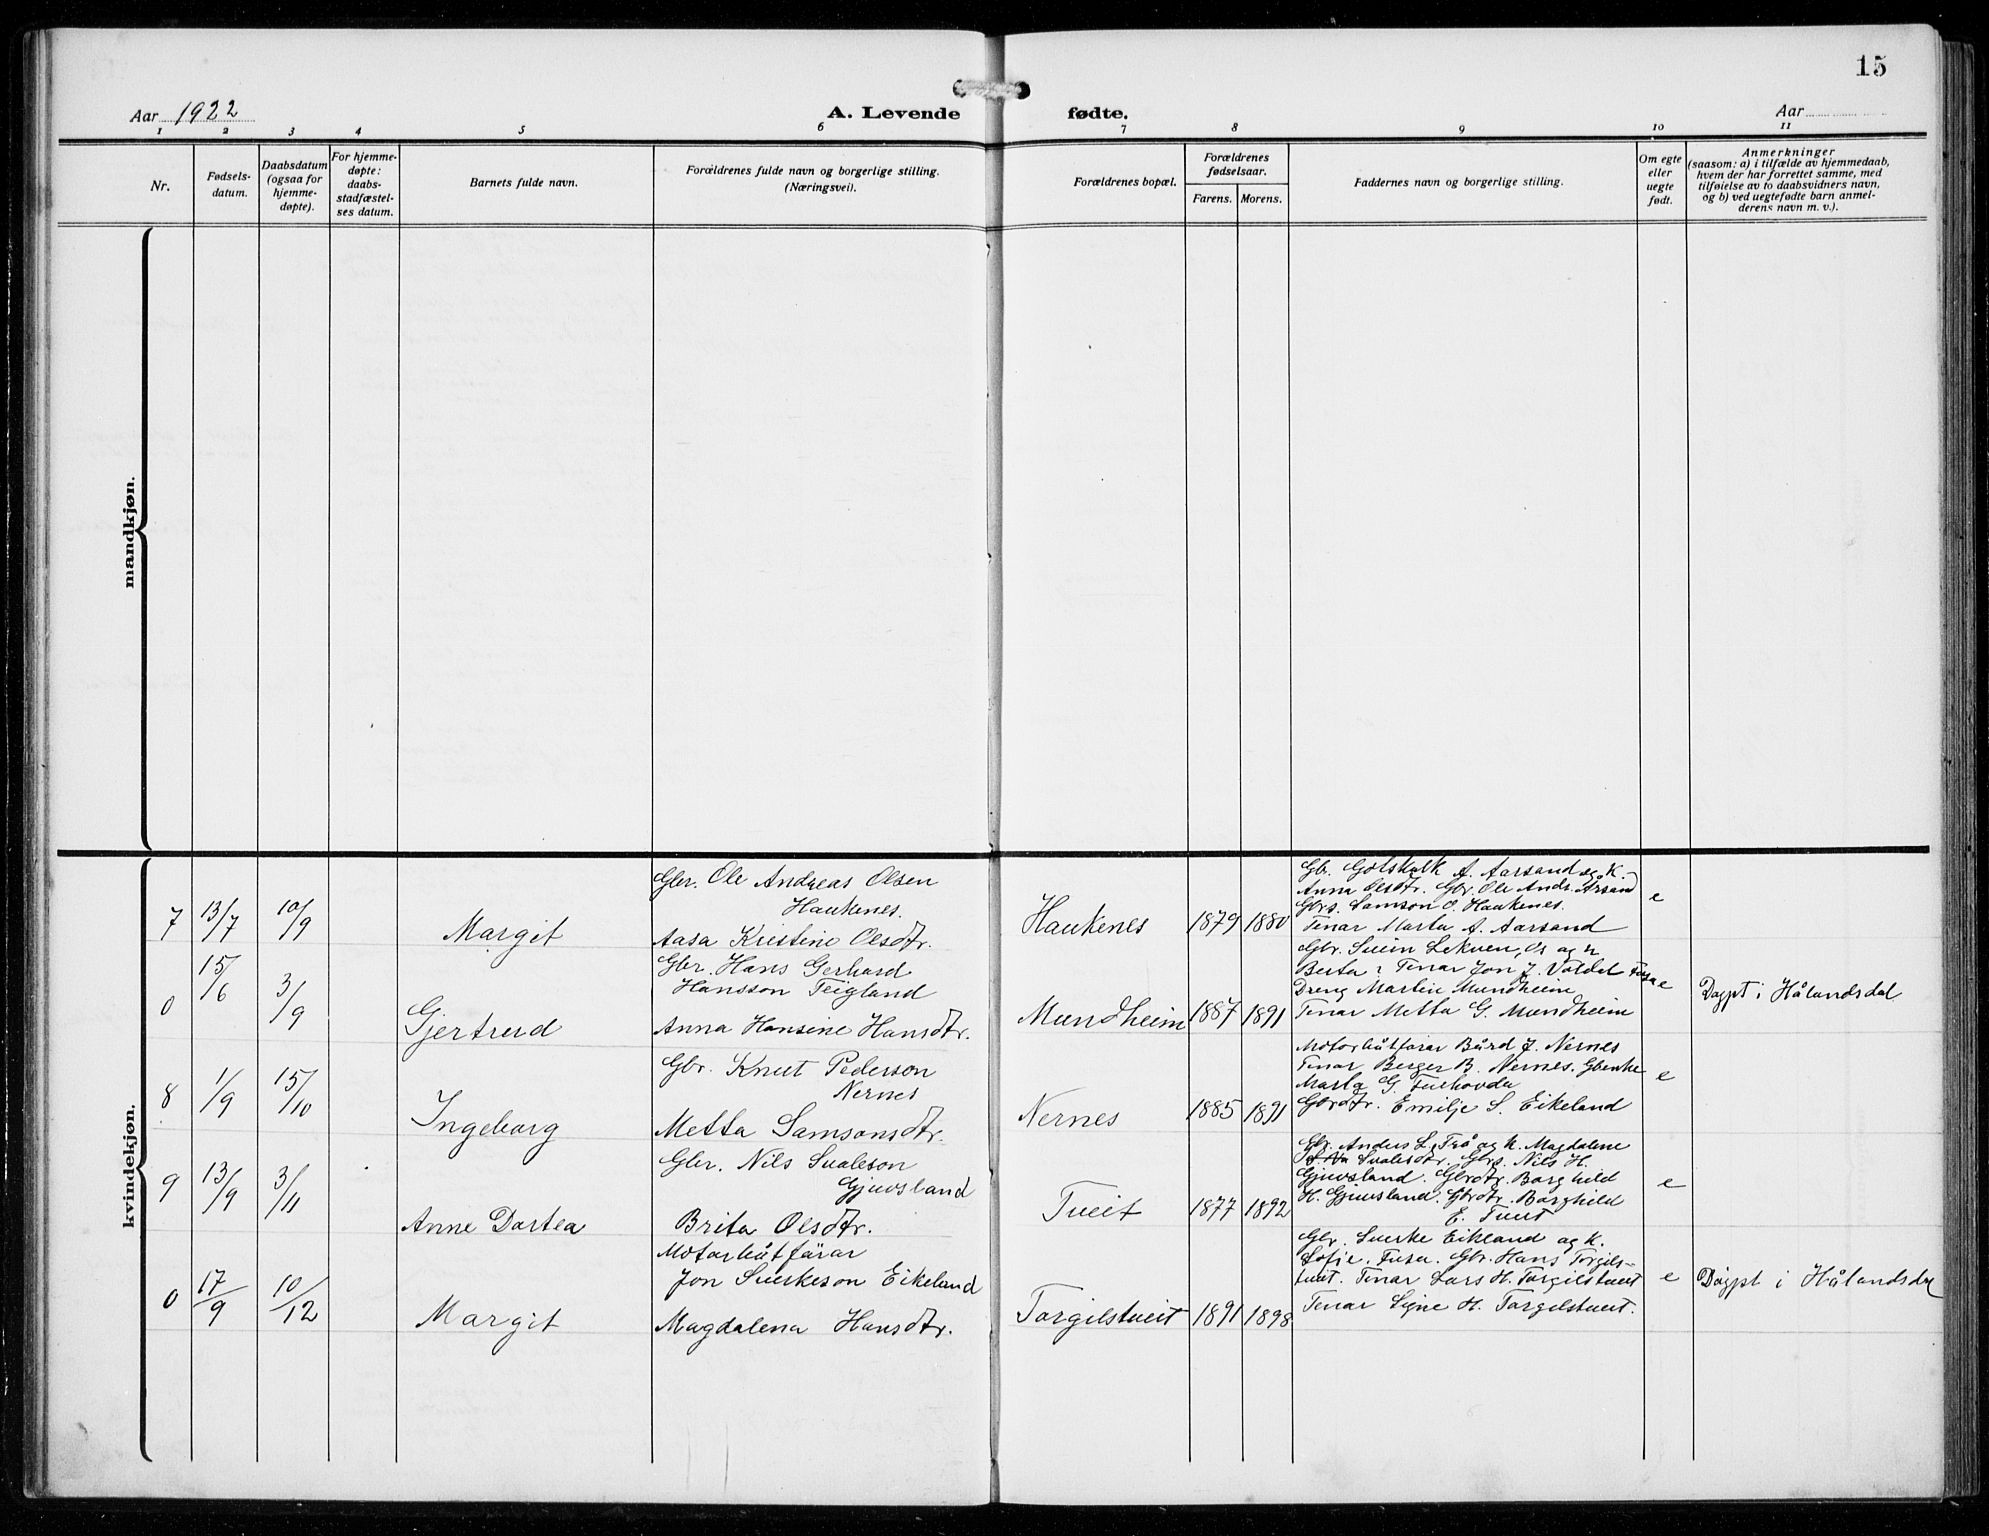 15
Aar 1922
A. Levende fødte.
Aar
1 2 3 4 5 6 7 8 9 10 11
Nr.
Fødsels-
datum.
Daabsdatum
(ogsaa for
hjemme-
døpte).
For hjemme-
døpte:
daabs-
stadfæstel-
ses datum.
Barnets fulde navn.
Forældrenes fulde navn og borgerlige stilling.
(Næringsvei).
Forældrenes bopæl.
Forældrenes
fødselsaar.
Farens. Morens.
Faddernes navn og borgerlige stilling.
Om egte
eller
uegte
født.
Anmerkninger
(saasom: a) i tilfælde av hjemmedaab,
hvem der har forrettet samme, med
tilføielse av to daabsvidners navn,
og b) ved uegtefødte barn anmel-
derens navn m. v.).
mandkjøn.
kvindekjøn.
7 13/7 10/9
Margit
Gbr. Ole Andreas Olsen
Haukenes.
Aasa Kristine Olsdtr.
Haukenes 1879 1880
Gbr. Gotskalk A. Aarsand og K.
Anna Olsdtr. Gbr. Ole Ands. Arsand
Gbrs. Samson O. Haukenes.
Tenar Marta A. Aarsand
e
0 15/6 3/9
Gjertrud
Gbr. Hans Gerhard
Hansson Teigland
Anna Hansine Hansdtr.
Mundheim 1887 1891
Gbr. Svein Lekven, og
Berta Tenar Jon J. Valdet
Dreng Martin Mundheim
Tenar Metta G. Mundheim
e
Døypt i Hålandsdal
8 1/9 15/10
Ingeborg
Gbr. Knut Pederson
Nernes
Metta Samsonsdtr.
Nernes 1885 1891
Motorbåtførar Bård J. Nernes
Tenar Berger B. Nernes. Gbenke
Marta G.
Gbrdtr. Emilje S. Eikeland
e
9 13/9 3/11
Anne Dortea
Gbr. Nils Svaleson
Gjuvsland
Brita Olsdtr.
Tveit 1877 1892
Gbr. Anders L. Trå og K. Magdalene
Svalesdtr. Gbrs. Nils H.
Gjuvsland. Gbrdtr. Borghild
H. Gjuvsland. Gbrdtr. Borghild
E. Tveit
e
0 17/9 10/12
Margit
Motorbåtførar
Jon Sverkeson Eikeland
Magdalena Hansdtr.
Torgilstveit 1891 1898
Gbr. Sverke Eikland og K.
Sofie. Fusa. Gbr. Hans Torgils-
tveit. Tenar Lars H. Torgilstveit
Tenar Signe H. Torgilstveit.
e
Døypt i Hålandsdal